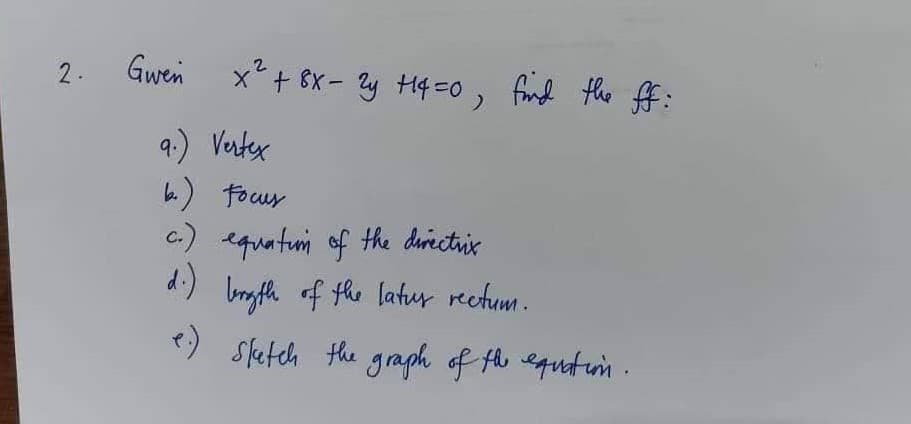 2. Given x² + 8x - 2y +14=0, find the ff:
a.) Vertex
b.) Focus
c.) equation of the directrix
d.) length of the latus rectum.
e.) Sketch the graph of the equation.